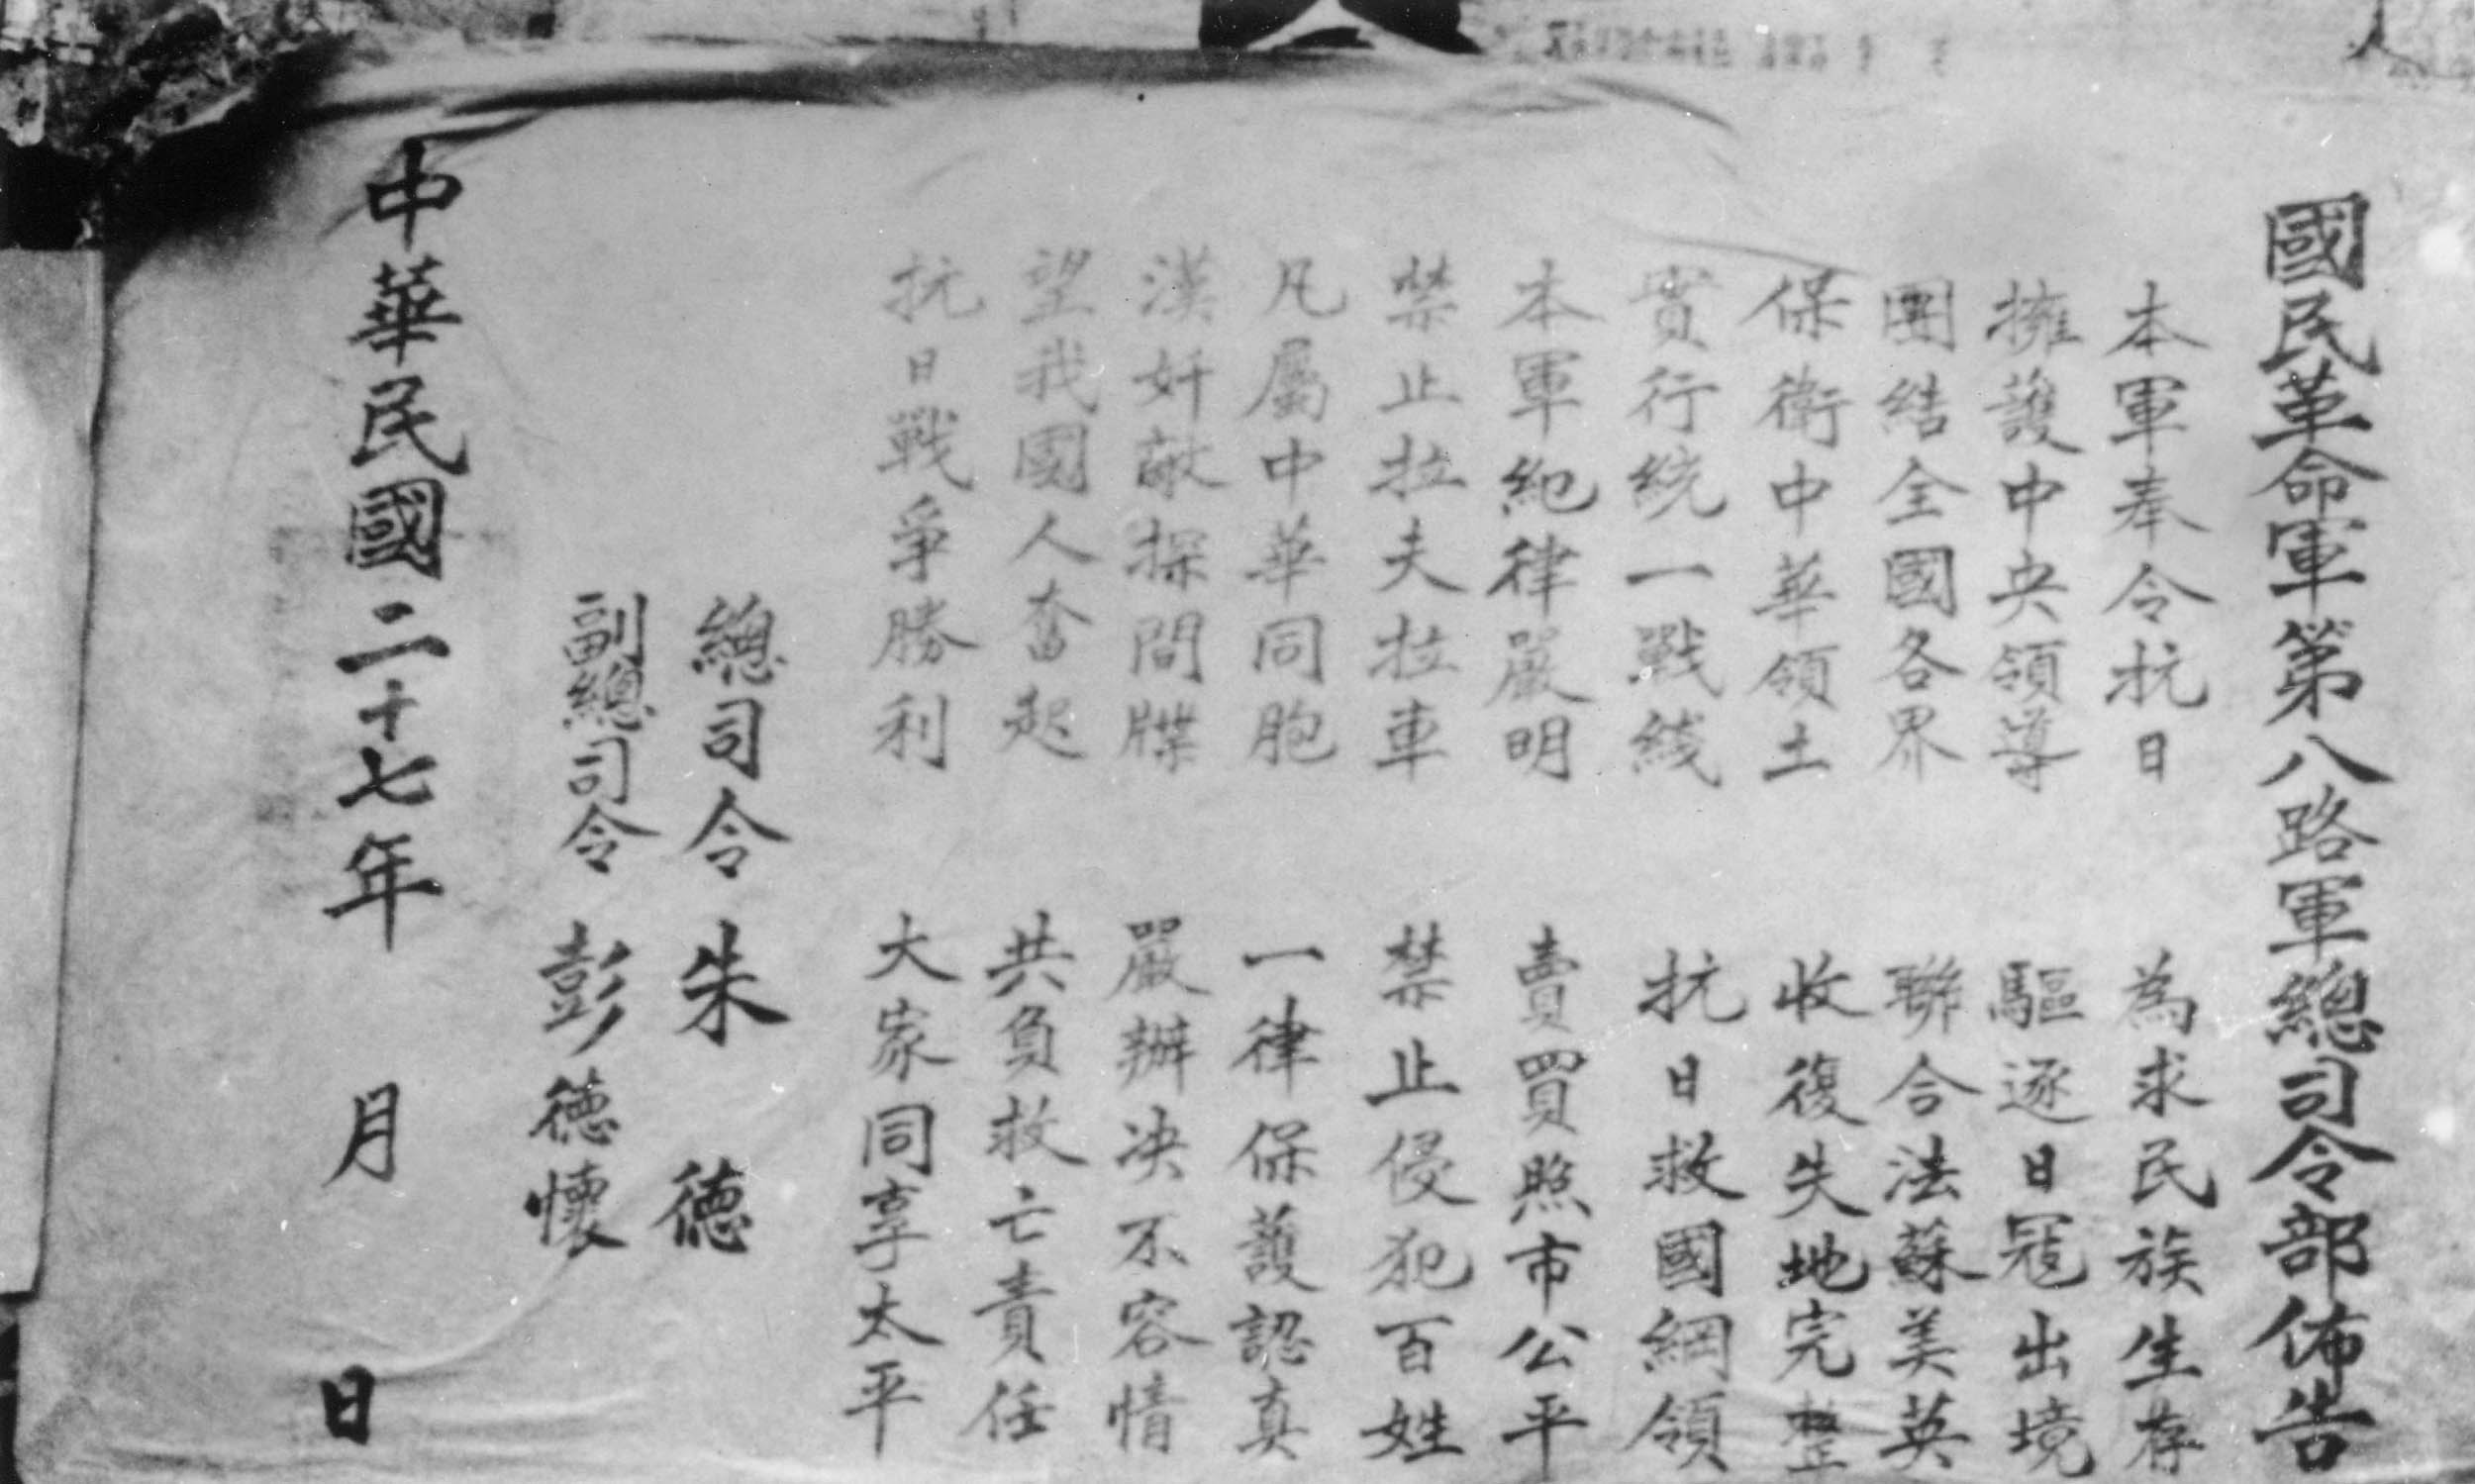 國民革命軍第八路軍總司令部佈告
本軍奉令抗日 為求民族生存
擁護中央領導 驅逐日寇出境
團結全國各界 聯合法蘇美英
保衛中華領土 收復失地完整
實行統一戰綫 抗日救國綱領
本軍紀律嚴明 賣買照市公平
禁止拉夫拉車 禁止侵犯百姓
凡屬中華同胞 一律保護認真
漢奸敵探間牒 嚴辦决不容情
望我國人奮起 共負救亡責任
抗日戰爭勝利 大家同享太平
總司令 朱德
副總司令 彭德懷
中華民國二十七年 月 日